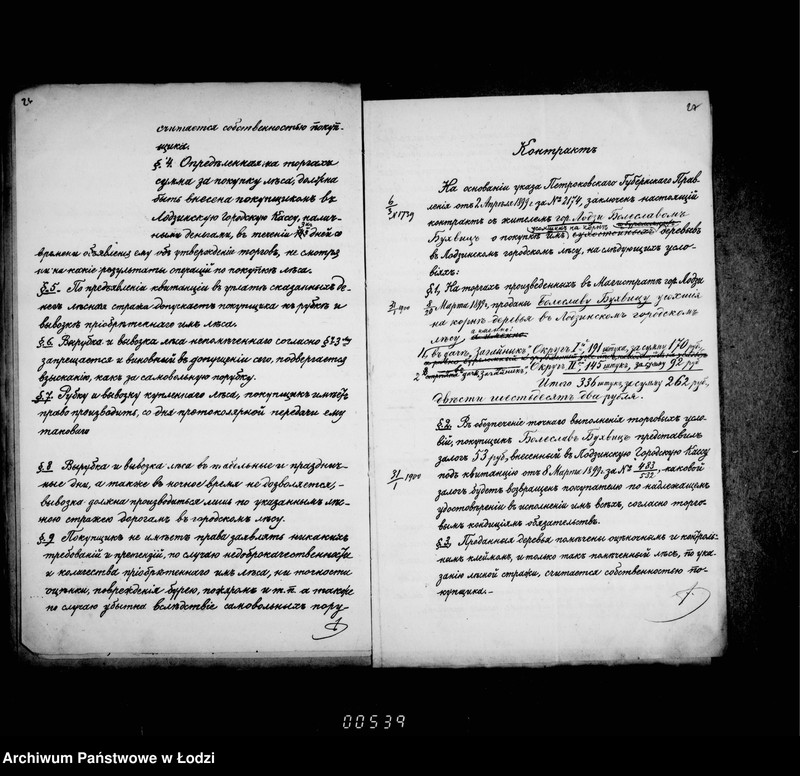 считается собственностью покуп-
щика.
§ 4. Опредѣленная на торгахъ
сумма за покупку лѣса, должна
быть внесена покупщикомъ въ
Лодзинскую Городскую Кассу, налич-
ными деньгами, въ теченіи дней со
времени объявленія ему объ утвержденіи торговъ, не смотря
ни на какіе результаты операціи по покупкѣ лѣса.
§ 5. По предъявленіи квитанціи въ уплатѣ сказанныхъ де-
негъ лѣсная стража допускаетъ покупщика къ рубкѣ и
вывозкѣ пріобрѣтеннаго имъ лѣса.
§ 6. Вырубка и вывозка лѣса непомѣченнаго согласно § 3
запрещается и виновный въ допущеніи сего, подвергается
взысканію, какъ за самовольную порубку.
§ 7. Рубку и вывозку купленнаго лѣса, покупщикъ имѣетъ
право производить, со дня протокольной передачи ему
такового
§ 8. Вырубка и вывозка лѣса въ табельные и празднич-
ные дни, а также въ ночное время не дозволяется;-
вывозка должна производиться лишь по указаннымъ лѣс-
ною стражею дорогамъ въ городскомъ лѣсу.
§ 9 Покупщикъ не имѣетъ права заявлять никакихъ
требованій и претензій, по случаю недоброкачественности
и количества пріобрѣтеннаго имъ лѣса, ни точности
оцѣнки, поврежденія бурею, пожаромъ и т.п. а также
по случаю убытка вслѣдствіе самовольныхъ пору
27
Контрактъ
На основаніи указа Петроковскаго Губернскаго Прав-
ленія отъ 2 Апрѣля 1899 г. за № 2674, заключенъ настоящій
контрактъ съ жителемъ гор. Лодзи Болеславомъ
Буявицъ о покупкѣ имъ усохшихъ на корнѣ деревьевъ
въ Лодзинскомъ городскомъ лѣсу, на слѣдующихъ усло-
віяхъ:
§ 1. На торгахъ произведенныхъ въ Магистратѣ гор. Лодзи
Марта 1899, проданы Болеславу Буявицу усохшія
на корнѣ деревья въ Лодзинскомъ городскомъ
лѣсу а именно:
въ дачѣ „Загайникъ" Округъ I 191 штука, за сумму 170 руб.
дачѣ „Загайникъ" Округъ II 145 штукъ, за сумму 92 руб
Итого 336 штукъ за сумму 262 руб,
двѣсти шестьдесятъ два рубля.
§ 2. Въ обезпеченіе точнаго выполненія торговыхъ усло-
вій, покупщикъ Болеславъ Буявицъ представилъ
залогъ 53 руб, внесенный въ Лодзинскую Городскую Кассу
подъ квитанцію отъ 8 Марта 1899 г. за № 483/532 каковой
залогъ будетъ возвращенъ покупателю по надлежащемъ
удостовѣреніи въ исполненіи имъ всѣхъ, согласно торго-
вымъ кондиціямъ обязательствъ.
§ 3. Проданныя деревья помѣчены оцѣночнымъ и контроль-
нымъ клеймомъ, и только такъ помѣченный лѣсъ, по ука-
занію лѣсной стражи, считается собственностью по-
купщика.-
31/1 1900
00539
Archiwum Państwowe w Łodzi